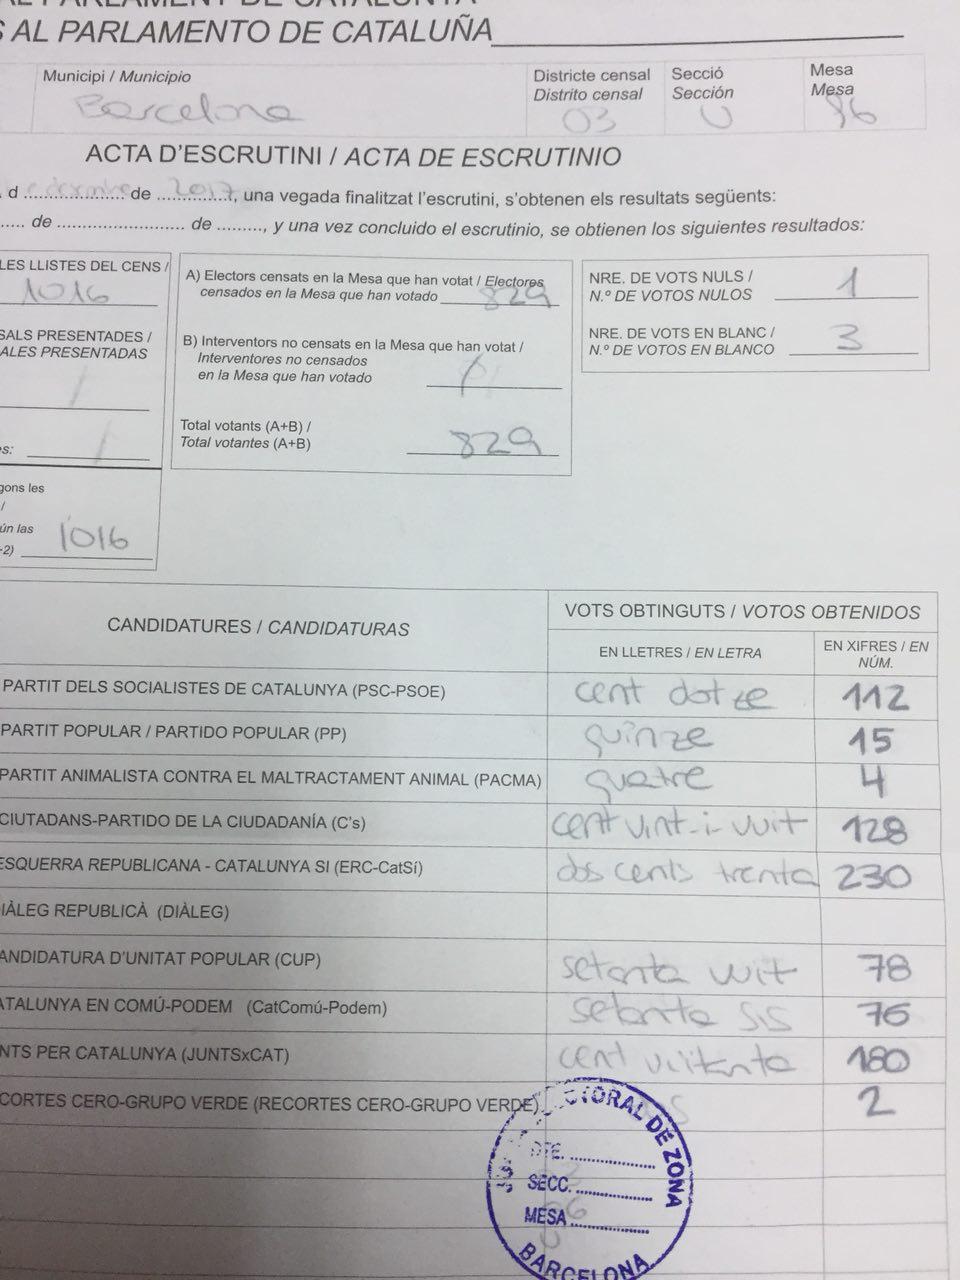 AL PARLAMENT DE CATALUNYA
S AL PARLAMENTO DE CATALUÑA
Municipi / Municipio
Barcelona
Districte censal
Distrito censal
03
Secció
Sección
U
Mesa
Mesa
ACTA D'ESCRUTINI / ACTA DE ESCRUTINIO
d ........ de 2017, una vegada finalitzat l'escrutini, s'obtenen els resultats següents:
..... de ........................ de ........., y una vez concluido el escrutinio, se obtienen los siguientes resultados:
LES LLISTES DEL CENS /
1016
SALS PRESENTADES /
ALES PRESENTADAS
/
s: /
gons les
/
ún las
-2) 1016
A) Electors censats en la Mesa que han votat / Electores
censados en la Mesa que han votado 829
B) Interventors no censats en la Mesa que han votat /
Interventores no censados
en la Mesa que han votado
Total votants (A+B) /
Total votantes (A+B) 829
NRE. DE VOTS NULS /
N.º DE VOTOS NULOS 1
NRE. DE VOTS EN BLANC /
N.º DE VOTOS EN BLANCO 3
CANDIDATURES / CANDIDATURAS
VOTS OBTINGUTS / VOTOS OBTENIDOS
EN LLETRES / EN LETRA
EN XIFRES / EN
NÚM.
PARTIT DELS SOCIALISTES DE CATALUNYA (PSC-PSOE) cent dotze 112
PARTIT POPULAR / PARTIDO POPULAR (PP) quinze 15
PARTIT ANIMALISTA CONTRA EL MALTRACTAMENT ANIMAL (PACMA) quatre 4
CIUTADANS-PARTIDO DE LA CIUDADANÍA (C's) cent vint-i-vuit 128
ESQUERRA REPUBLICANA - CATALUNYA SI (ERC-CatSí) dos cents trenta 230
IÀLEG REPUBLICÀ (DIÀLEG)
ANDIDATURA D'UNITAT POPULAR (CUP) setanta vuit 78
ATALUNYA EN COMÚ-PODEM (CatComú-Podem) setanta sis 76
NTS PER CATALUNYA (JUNTSxCAT) cent vuitanta 180
CORTES CERO-GRUPO VERDE (RECORTES CERO-GRUPO VERDE) 2
ECTORAL DE ZONA
DTE. ..............
SECC. ..............
MESA ..............
BARCELONA